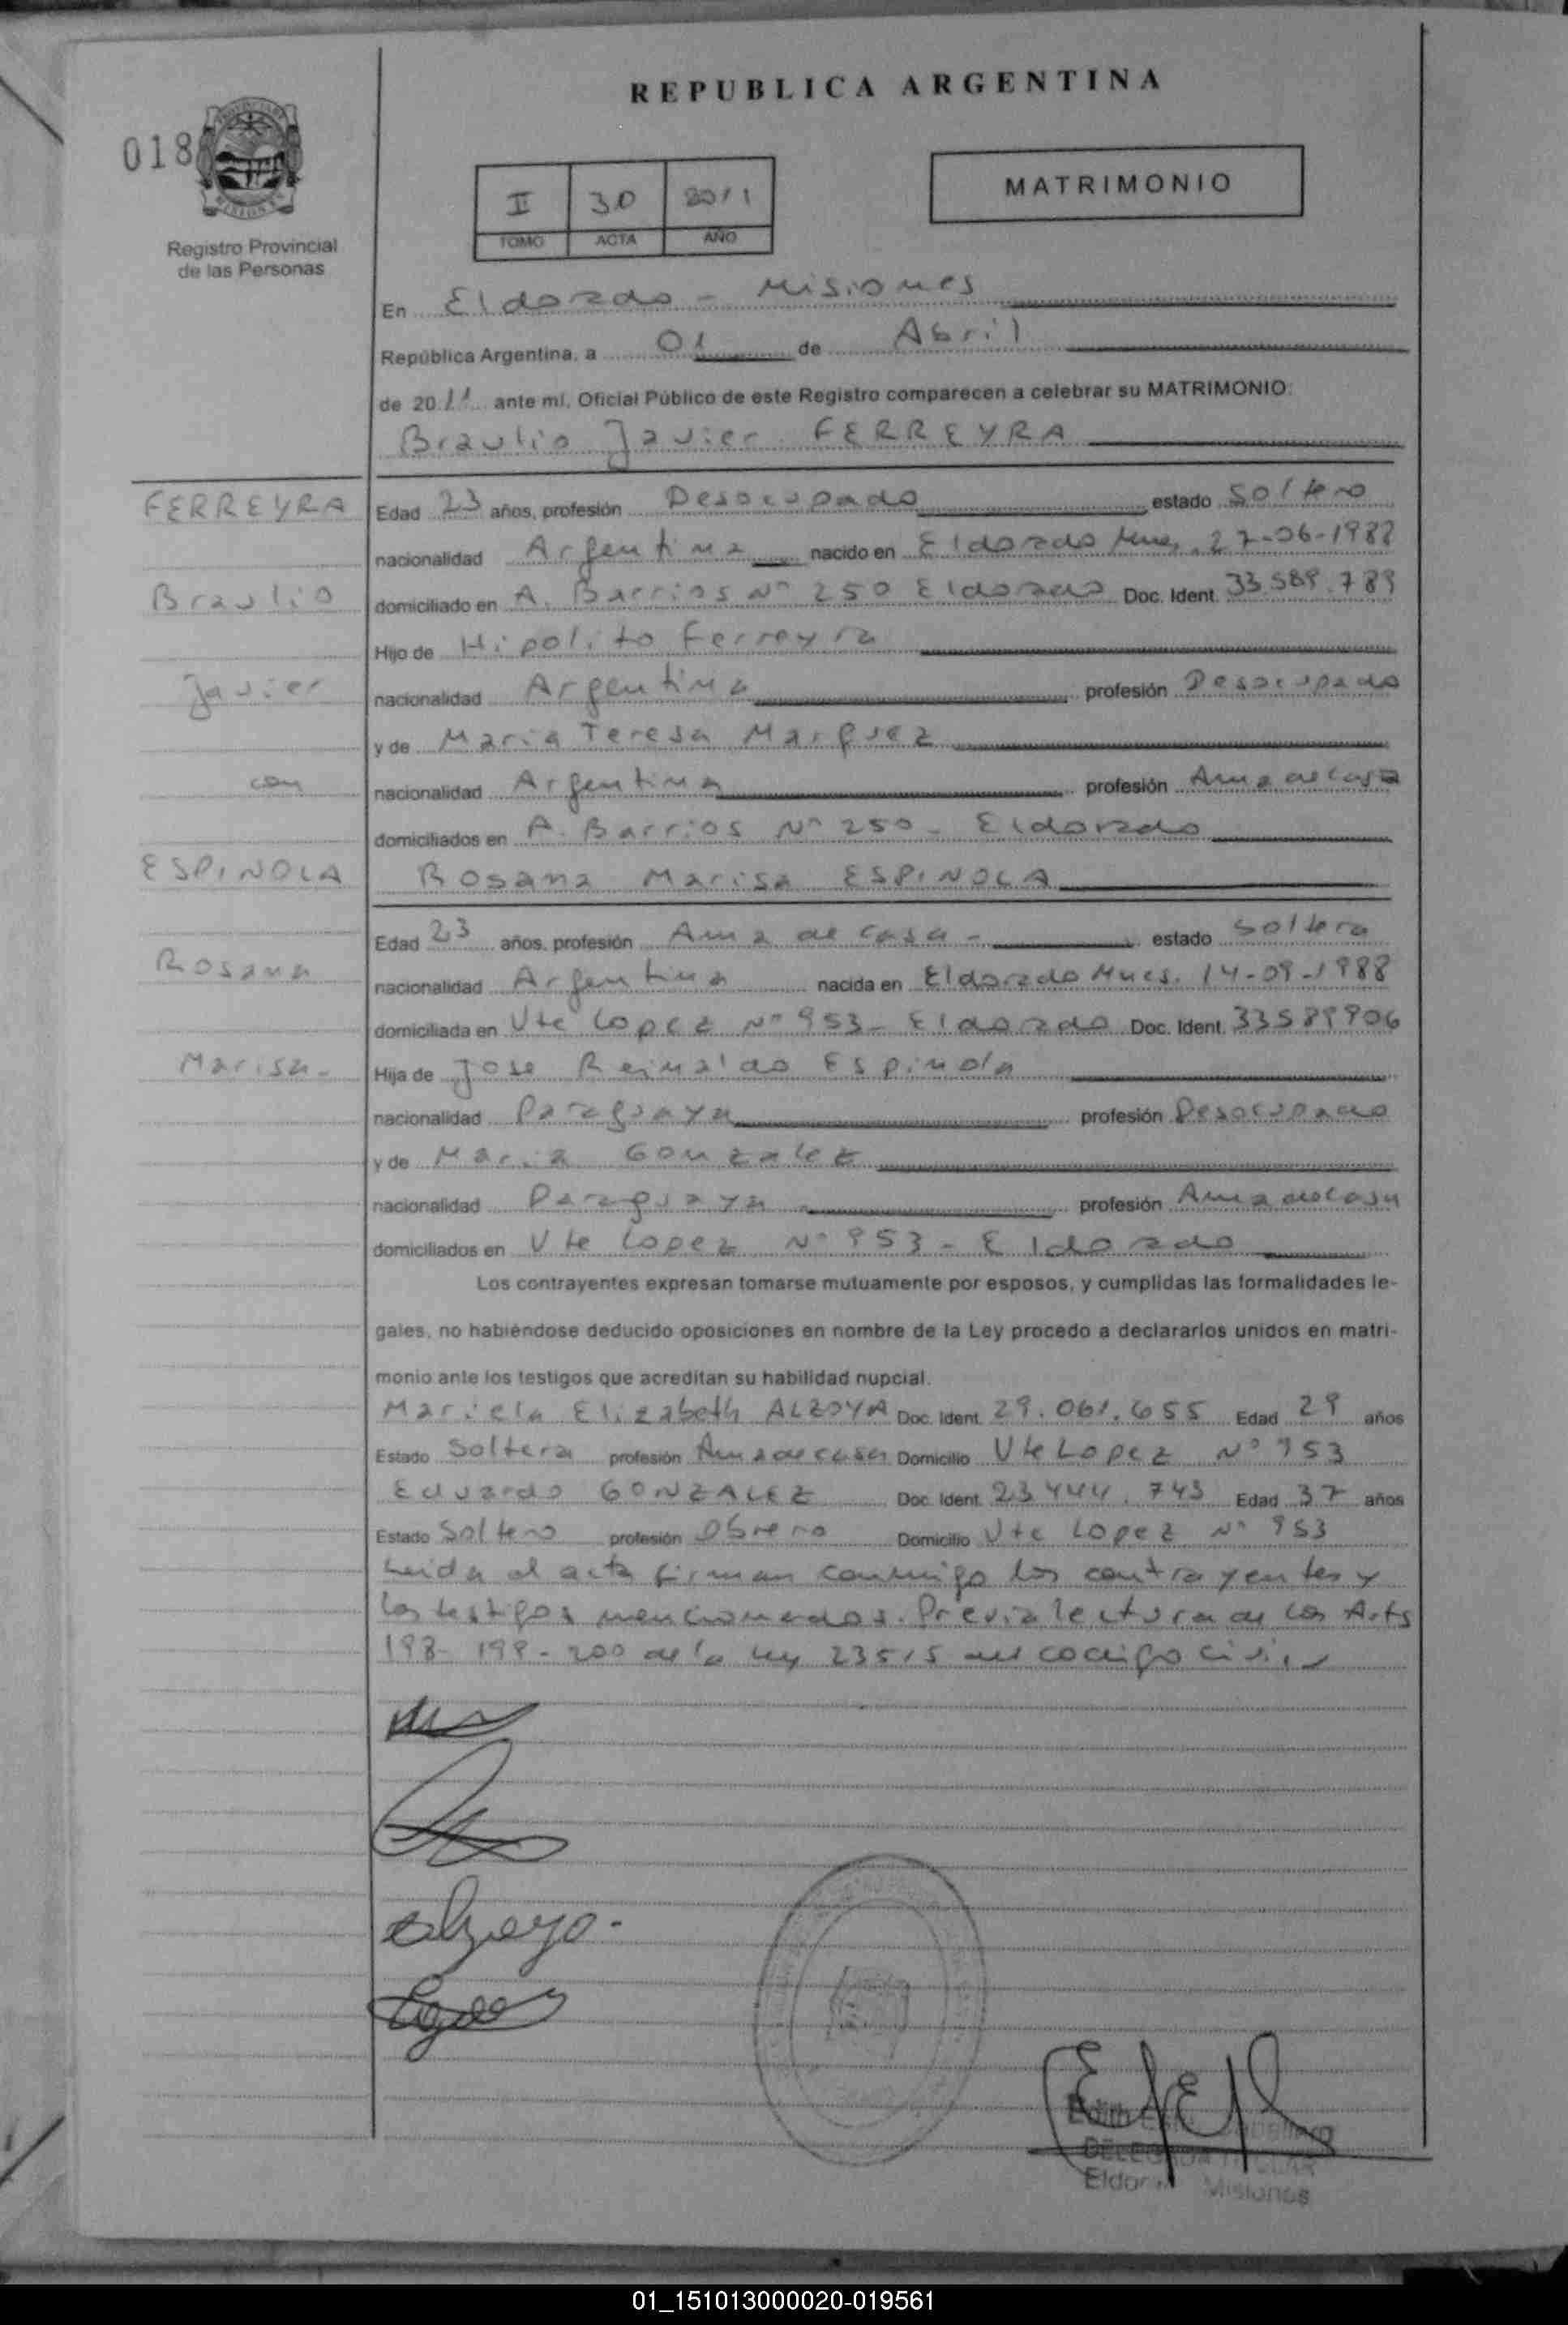 REPUBLICA ARGENTINA
018
MATRIMONIO
II 30 2011
TOMO ACTA AÑO
Registro Provincial
de las Personas
En Eldorado - Misiones
República Argentina, a 01 de Abril
de 2011 ante mí, Oficial Público de este Registro comparecen a celebrar su MATRIMONIO:
Braulio Javier FERREYRA
FERREYRA
Edad 23 años, profesión Desocupado estado Soltero
nacionalidad Argentina nacido en Eldorado Mnes. 27-06-1987
Braulio
domiciliado en A. Barrios Nº 250 Eldorado Doc. Ident. 33.589.789
Hijo de Hipolito Ferreyra
Javier
nacionalidad Argentina profesión Desocupado
y de Maria Teresa Marquez
con
nacionalidad Argentina profesión Ama de Casa
domiciliados en A. Barrios Nº 250 - Eldorado
ESPINOLA
Rosana Marisa ESPINOLA
Edad 23 años, profesión Ama de Casa - estado Soltera
Rosana
nacionalidad Argentina nacida en Eldorado Mnes. 14-09-1988
domiciliada en Vte Lopez Nº 953 - Eldorado Doc. Ident. 33589906
Marisa-
Hija de Jose Reinaldo Espinola
nacionalidad Paraguaya profesión Desocupado
y de Maria Gonzalez
nacionalidad Paraguaya profesión Ama de Casa
domiciliados en Vte Lopez Nº 953 - Eldorado
Los contrayentes expresan tomarse mutuamente por esposos, y cumplidas las formalidades le-
gales, no habiéndose deducido oposiciones en nombre de la Ley procedo a declararlos unidos en matri-
monio ante los testigos que acreditan su habilidad nupcial.
Mariela Elizabeth ALZOYA Doc. Ident. 29.061.655 Edad 29 años
Estado Soltera profesión Ama de casa Domicilio Vte Lopez Nº 953
Eduardo GONZALEZ Doc. Ident. 23444.743 Edad 37 años
Estado Soltero profesión Obrero Domicilio Vte Lopez Nº 953
Leida el acta firman conmigo los contrayentes y
los testigos mencionados. Previa lectura de los Arts
198- 199- 200 de la Ley 23515 del codigo civil
Edith
DELEGADA TITULAR
Eldorado Misiones
01_151013000020-019561